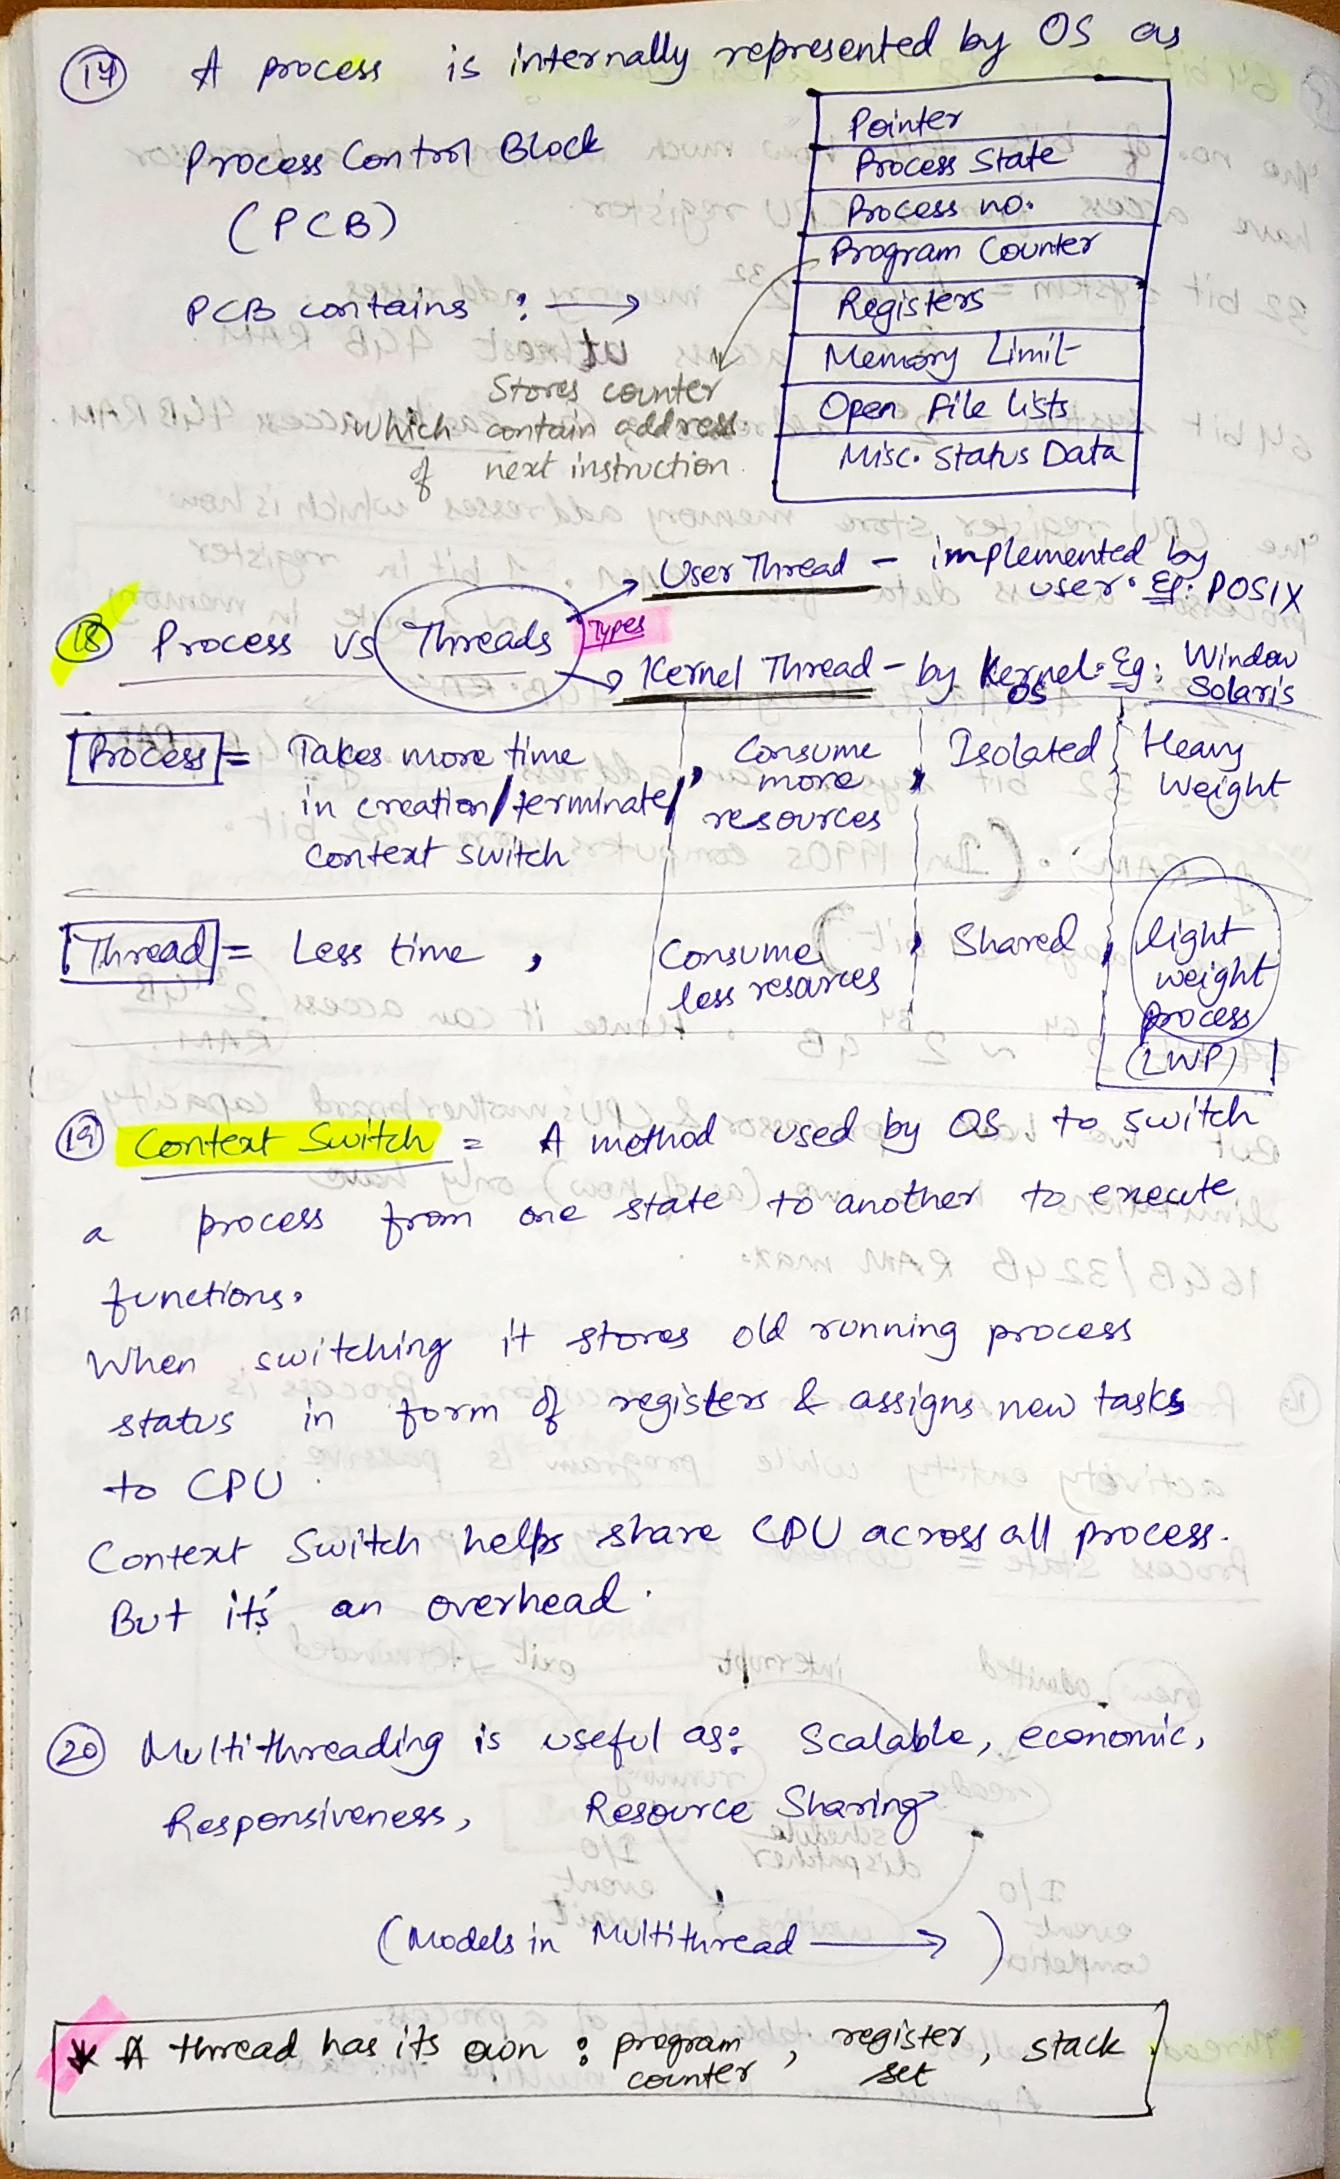 17 A process is internally represented by OS as
Process Control Block
(PCB)
PCB contains : →
Pointer
Process State
Process no.
Program Counter
Registers
Memory Limit
Open File lists
Misc. Status Data
Stores counter
which contain address
of next instruction.
18 Process vs Threads Types
User Thread - implemented by
user. Eg: POSIX
Kernel Thread - by Kernel. Eg: Window
OS Solaris
Process = Takes more time
in creation/terminate/
context switch
, Consume
more
resources
, Isolated
Heavy
Weight
Thread = Less time ,
Consume
less resources
, Shared
, light
weight
process
(LWP)
19 Context Switch = A method used by OS to switch
a process from one state to another to execute
functions.
When switching it stores old running process
status in form of registers & assigns new tasks
to CPU.
Context Switch helps share CPU across all process.
But it's an overhead.
20 Multithreading is useful as: Scalable, economic,
Responsiveness, Resource Sharing
(Models in Multithread → )
* A thread has its own : program
counter , register
set , stack